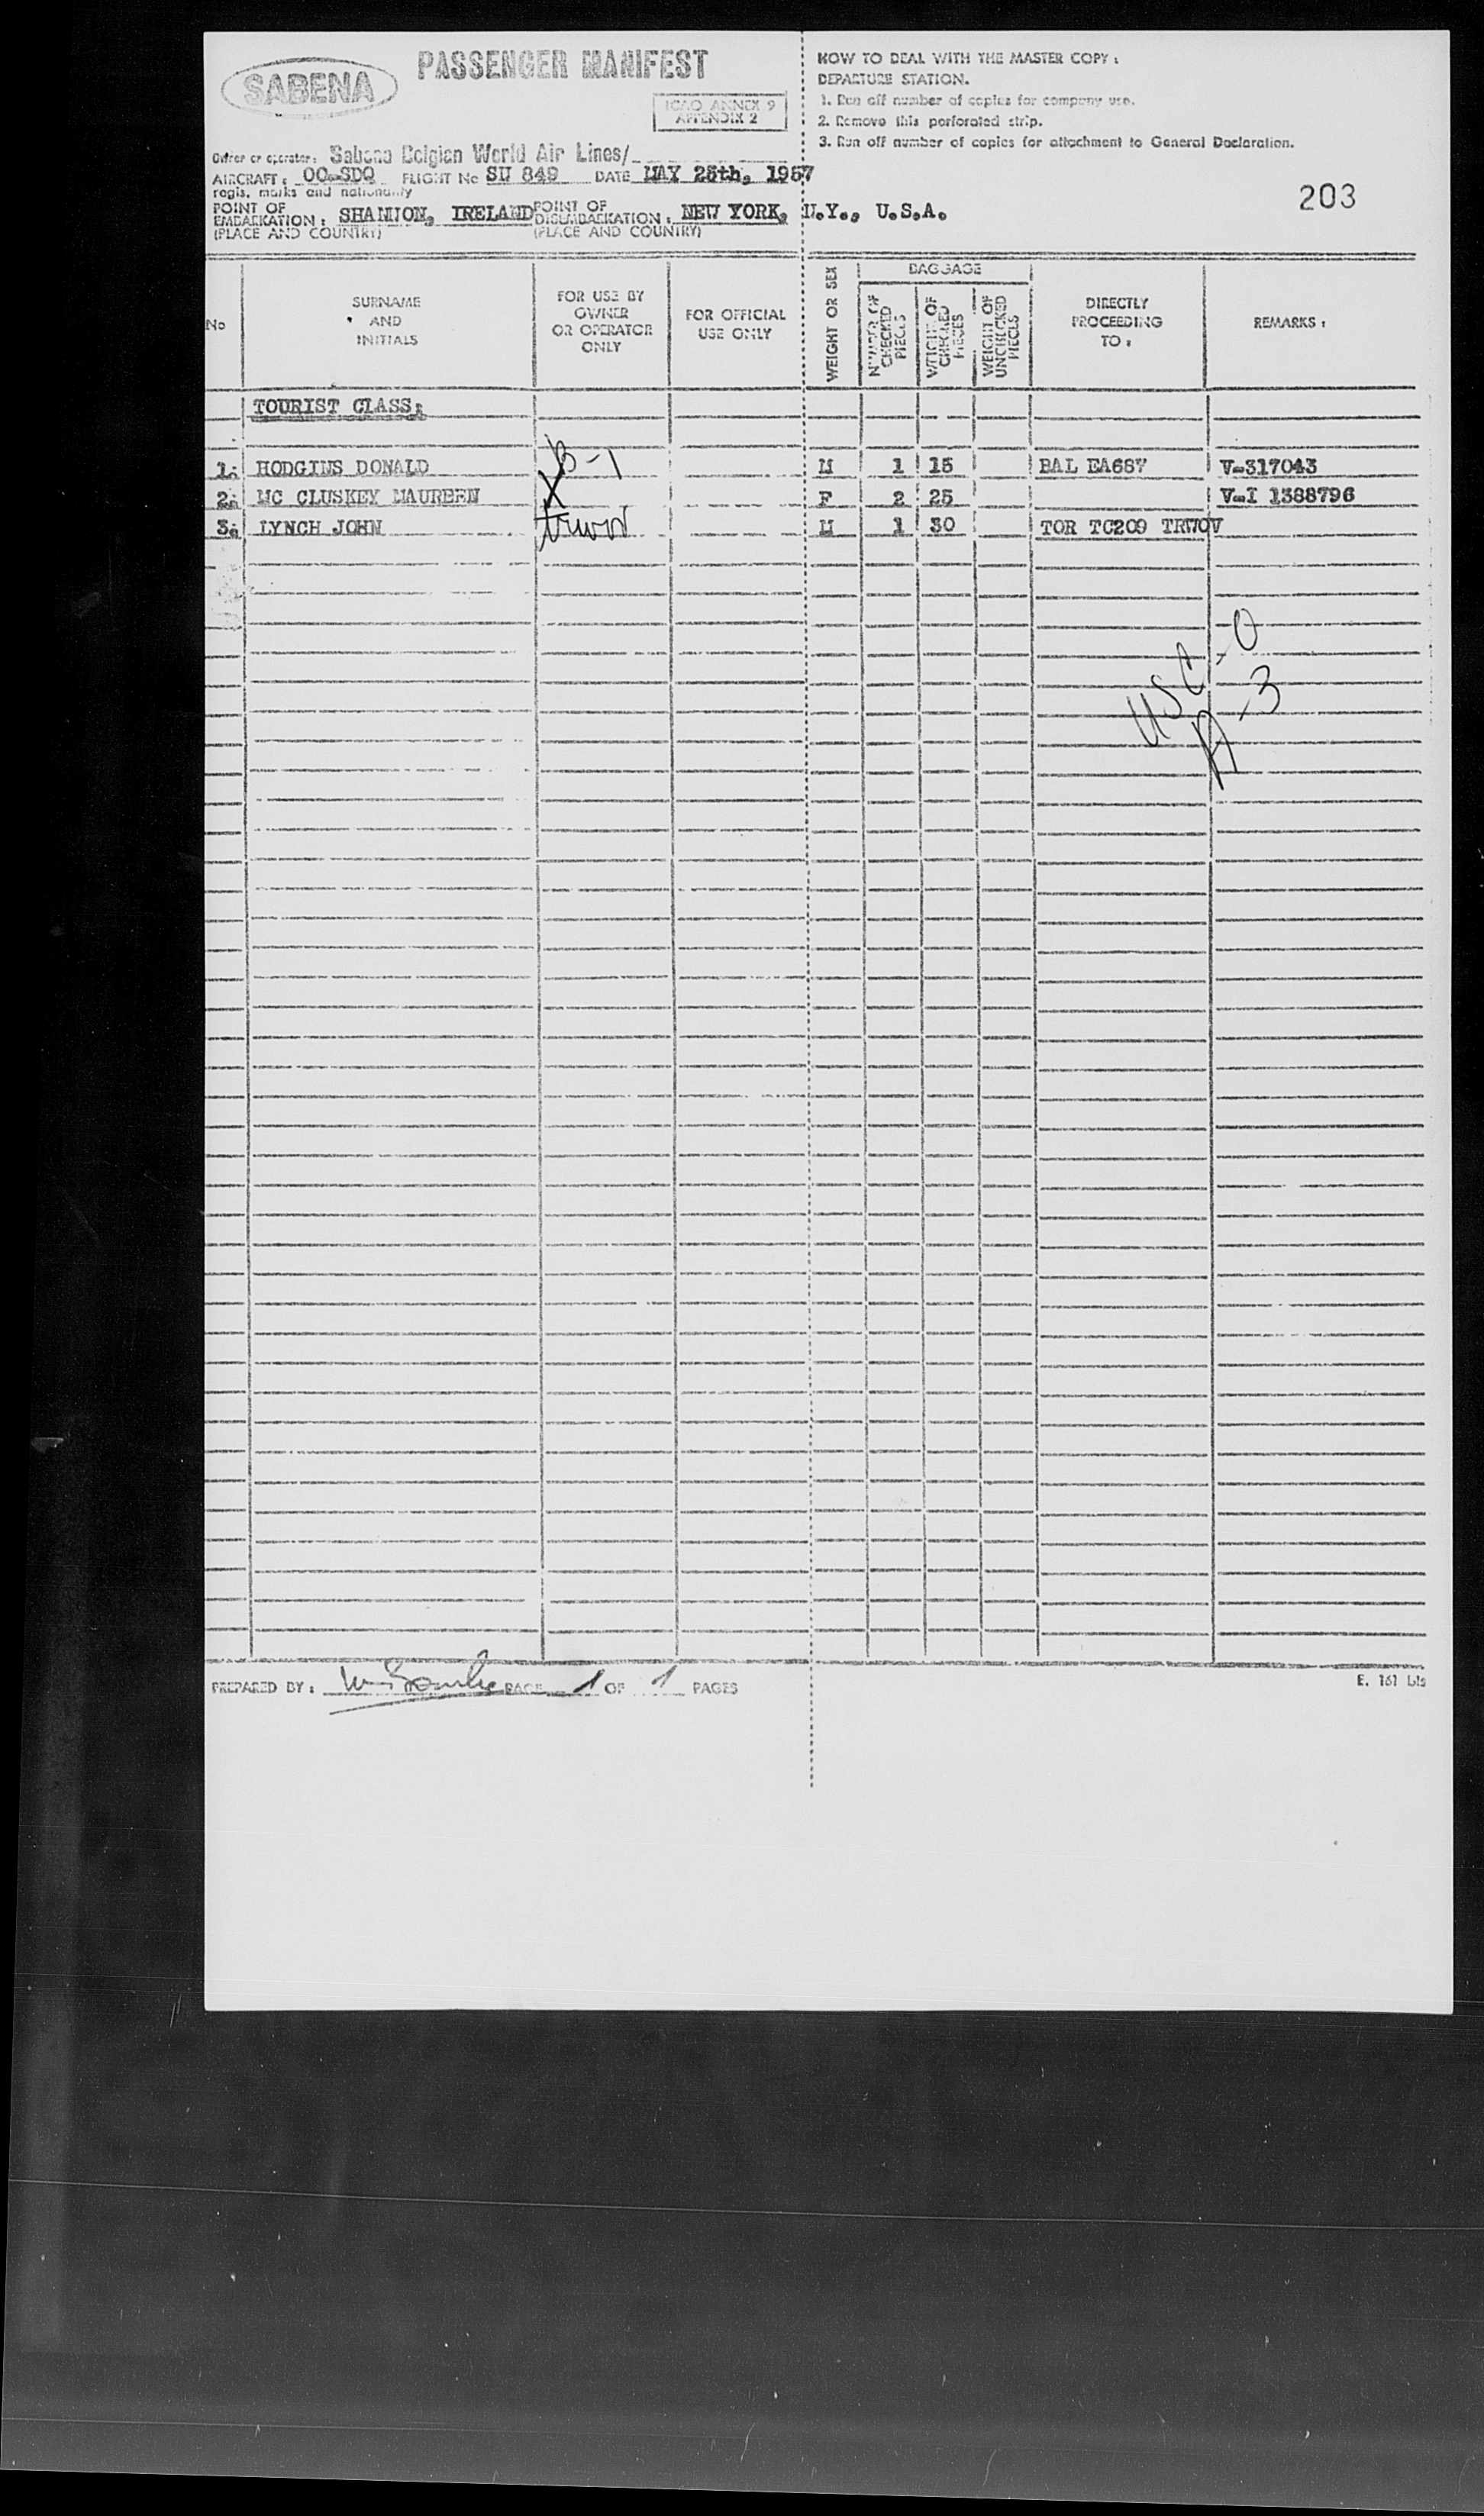 SABENA
PASSENGER MANIFEST
ICAO ANNEX 9
APPENDIX 2
HOW TO DEAL WITH THE MASTER COPY :
DEPARTURE STATION.
1. Run off number of copies for company use.
2. Remove this perforated strip.
3. Run off number of copies for attachment to General Declaration.
Owner or operator: Sabena Belgian World Air Lines/
AIRCRAFT : OO-SDQ FLIGHT No SN 849 DATE MAY 25th, 1957
regis. marks and nationality
203
POINT OF EMBARKATION : SHANNON, IRELAND POINT OF DISEMBARKATION : NEW YORK, N.Y., U.S.A.
(PLACE AND COUNTRY) (PLACE AND COUNTRY)
No
SURNAME AND INITIALS
FOR USE BY OWNER OR OPERATOR ONLY
FOR OFFICIAL USE ONLY
WEIGHT OR SEX
BAGGAGE
NUMBER OF CHECKED PIECES
WEIGHT OF CHECKED PIECES
WEIGHT OF UNCHECKED PIECES
DIRECTLY PROCEEDING TO :
REMARKS :
TOURIST CLASS:
1. HODGINS DONALD B-1 M 1 15 BAL EA687 V-317043
2. MC CLUSKEY MAUREEN X F 2 25 V-I 1388796
3. LYNCH JOHN trwov M 1 30 TOR TC209 TRWOV
USC - 0
A - 3
PREPARED BY : PAGE 1 OF 1 PAGES
E. 161 bis